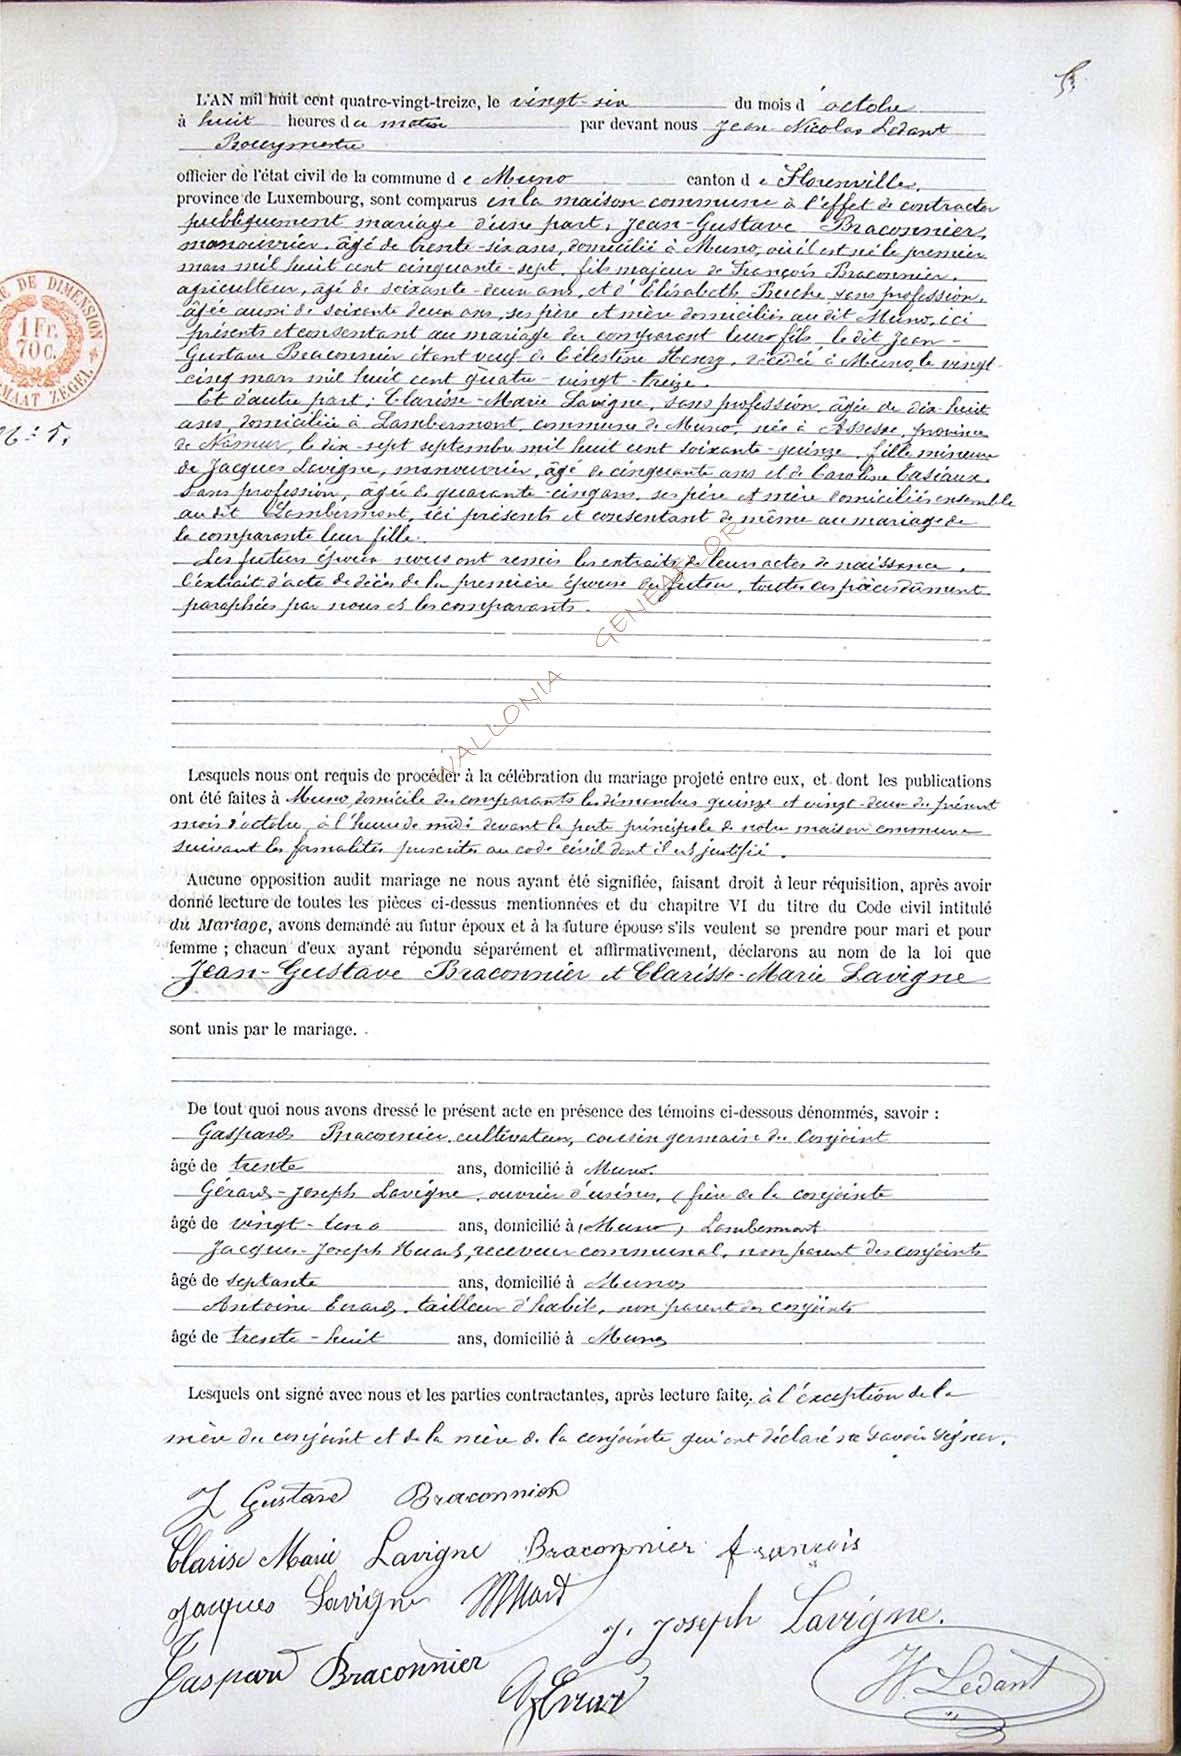 5
L'AN mil huit cent quatre-vingt-treize, le vingt-six du mois d'octobre
à huit heures du matin par devant nous Jean-Nicolas Ledant
Bourgmestre
officier de l'état civil de la commune de Muno canton de Florenville,
province de Luxembourg, sont comparus en la maison commune à l'effet de contracter
publiquement mariage d'une part, Jean-Gustave Braconnier,
manouvrier, âgé de trente-six ans, domicilié à Muno, où il est né le premier
mars mil huit cent cinquante-sept, fils majeur de François Braconnier,
agriculteur, âgé de soixante-deux ans, et d'Elisabeth Buche, sans profession,
âgée aussi de soixante deux ans, ses père et mère domiciliés au dit Muno, ici
présents et consentant au mariage du comparant leur fils, le dit Jean-
Gustave Braconnier étant veuf de Célestine Henry, décédée à Muno, le vingt-
cinq mars mil huit cent quatre-vingt-treize.
Et d'autre part; Clarisse-Marie Lavigne, sans profession, âgée de dix-huit
ans, domiciliée à Lambermont, commune de Muno, née à Assesse, province
de Namur, le dix-sept septembre mil huit cent soixante-quinze, fille mineure
de Jacques Lavigne, manouvrier, âgé de cinquante ans et de Caroline Caséaux,
sans profession, âgée de quarante-cinq ans, ses père et mère domiciliés ensemble
au dit Lambermont, ici présents et consentant de même au mariage de
la comparante leur fille.
Les futurs époux nous ont remis les extraits de leurs actes de naissance,
l'extrait d'acte de décès de la première épouse du futur, toutes ces pièces dûment
paraphées par nous et les comparants.
Lesquels nous ont requis de procéder à la célébration du mariage projeté entre eux, et dont les publications
ont été faites à Muno, domicile des comparants les dimanches quinze et vingt-deux du présent
mois d'octobre, à l'heure de midi devant la porte principale de notre maison commune
suivant les formalités prescrites au code civil dont il est justifié.
Aucune opposition audit mariage ne nous ayant été signifiée, faisant droit à leur réquisition, après avoir
donné lecture de toutes les pièces ci-dessus mentionnées et du chapitre VI du titre du Code civil intitulé
du Mariage, avons demandé au futur époux et à la future épouse s'ils veulent se prendre pour mari et pour
femme ; chacun d'eux ayant répondu séparément et affirmativement, déclarons au nom de la loi que
Jean-Gustave Braconnier et Clarisse-Marie Lavigne
sont unis par le mariage.
De tout quoi nous avons dressé le présent acte en présence des témoins ci-dessous dénommés, savoir :
Gaspard Braconnier, cultivateur, cousin germain du conjoint
âgé de trente ans, domicilié à Muno.
Gérard-Joseph Lavigne, ouvrier d'usines, frère de la conjointe
âgé de vingt-un ans, domicilié à (Muno) Lambermont
Jacques-Joseph Huart, receveur communal, non parent des conjoints
âgé de septante ans, domicilié à Muno
Antoine Evrard, tailleur d'habits, non parent des conjoints
âgé de trente-huit ans, domicilié à Muno
Lesquels ont signé avec nous et les parties contractantes, après lecture faite, à l'exception de la
mère du conjoint et de la mère de la conjointe qui ont déclaré ne savoir signer.
J Gustave Braconnier
Clarise Marie Lavigne Braconnier françois
Jacques Lavigne Huart
J. Joseph Lavigne.
Gaspard Braconnier
Evrard
N. Ledant
DE DIMENSION
1 Fr.
70 C.
MAAT ZEGEL
WALLONIA GENEAL.ORG